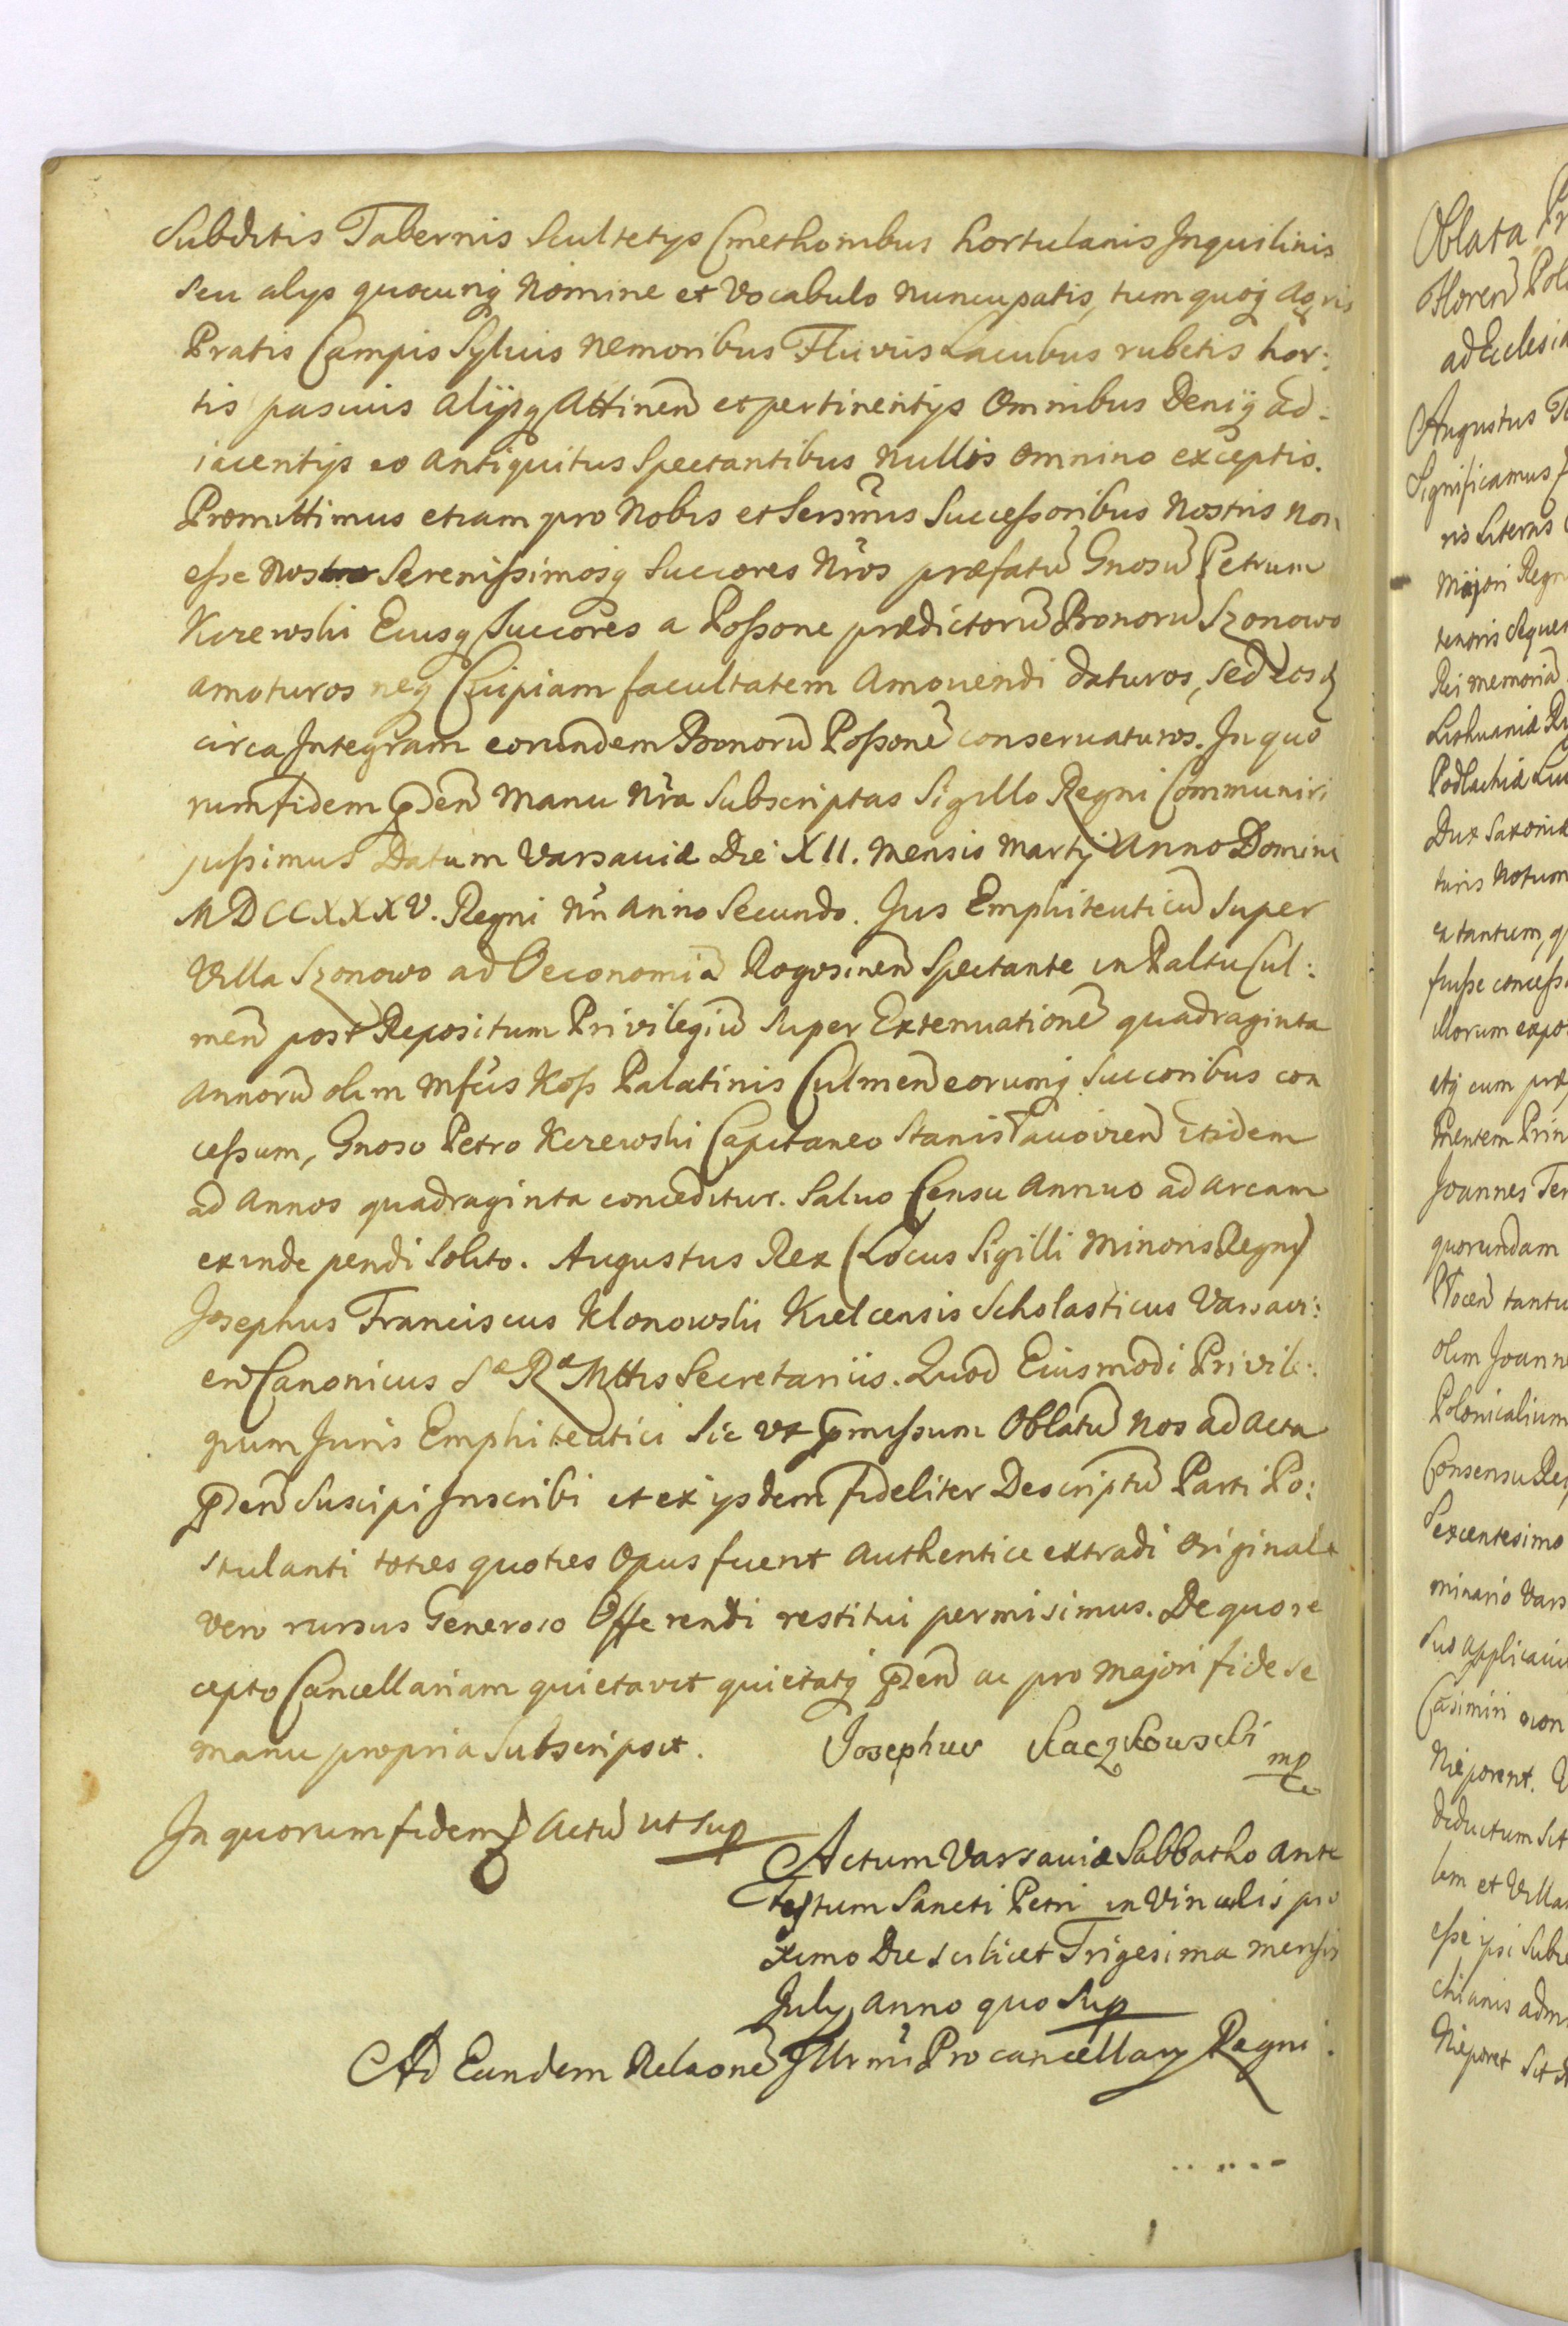 Subditis Tabernis Scultetys Cmethonibus hortulanis Inquilinis
seu alys quocunq Nomine et Vocabulo nuncupatis, tum quoq Agris
Pratis Campis Sylvis Nemoribus Fluviis Lacubus rubetis hor:
tis pascuis alijsq Attinen et pertinentys Omnibus Deniq ad-
iacentys eo Antiquitus Spectantibus Nullis Omnino exceptis.
Promittimus etiam pro Nobis et Sersmis Successoribus Nostris non
esse Nos Serenissimosq Succores Nros præfatu Gnosu Petrum
Kczewski Eiusq Succores a Possone prædictoru Bonoru Szonowo
amoturos neq Cuipiam facultatem Amovendi daturos, sed eos
circa Integram eorundem Bonoru Possone conservaturos. In quo
rum fidem pden Manu Nra Subscriptas Sigillo Regni Communiri
jussimus Datum Varsaviæ Die XII. Mensis Martij Anno Domini
MDCCXXXV. Regni Nri Anno Secundo. Jus Emphiteuticu Super
Villa Szonowo ad Oeconomia Rogosinen Spectante in Paltu Cul:
men post Repositum Privilegiu Super Extenuatione quadraginta
Annoru olim Mfcis Koss Palatinis Culmen eorumq Succoribus con
cessum, Gnoso Petro Kczewski Capitaneo Stanislavovien itidem
ad Annos quadraginta conceditur. Salvo Censu Annuo ad arcam
exinde pendi Solito. Augustus Rex (Locus Sigilli Minoris Regni)
Josephus Franciscus Klonowski Kielcensis Scholasticus Varsavi:
en Canonicus Sæ Ræ Mttis Secretarius. Quod Eiusmodi Privile:
gium Juris Emphiteutici Sic ut pmissum Oblatu Nos ad Acta
pden Suscipi Inscribi et ex ysdem fideliter Descriptu Parti Po:
stulanti toties quoties Opus fuerit Authentice extradi Originale
vero rursus Generoso Offerendi restitui permisimus. De quo re
cepto Cancellariam quietavit quietatq pden ac pro majori fide se
manu propria Subscripsit. Josephus Kaczkowski mp
In quorum fidem Actu ut sup
Actum Varsaviæ Sabbatho ante
Festum Sancti Petri in Vinculis pro
ximo Die scilicet Trigesima mensis
July Anno quo Sup
Ad Eundem Relaone Illrmi Procancellary Regni.
Oblata
ad Ecclesia
Augustus
Significamus
ris Literis
Majori Regn
tenoris seque
Rei memoria
Podlachiæ
Dux Saxoniæ
turis Notum
ex tantum, q
fuisse concess
illorum expo
atq cum præ
Mentem Prin
Joannes Ter
quorundam
olim Joann
Polonicalium
Consensu Re
Sexcentesimo
minario Vars
Sus applicavi
Casimiri
Nieporent.
deductum sit
lem et Villa
esse ipsi
chianis adm
Nieporet sit